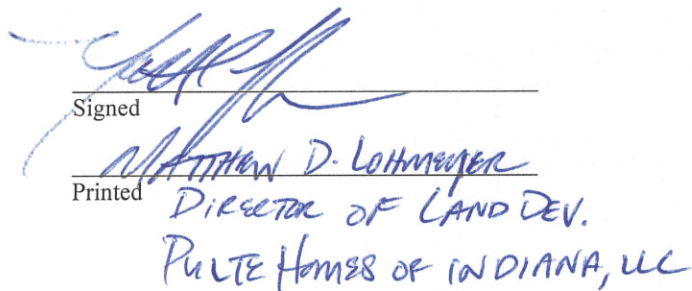 Signed
MATTHEW D. LOHMEYER
Printed
DIRECTOR OF LAND DEV.
PULTE HOMES OF INDIANA, LLC